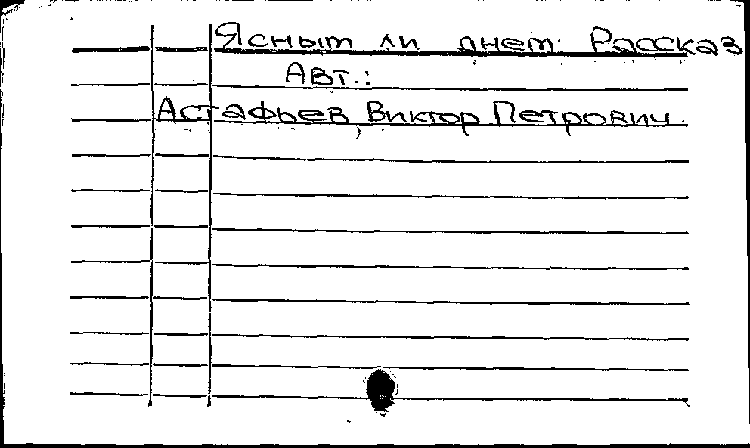 Ясным ли днем: Рассказ
Авт.:
Астафьев, Виктор Петрович.